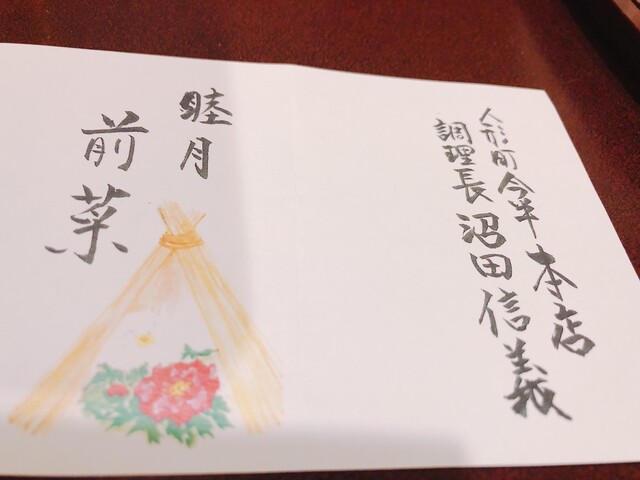 人形町今半本店
調理長沼田信義
睦月
前菜